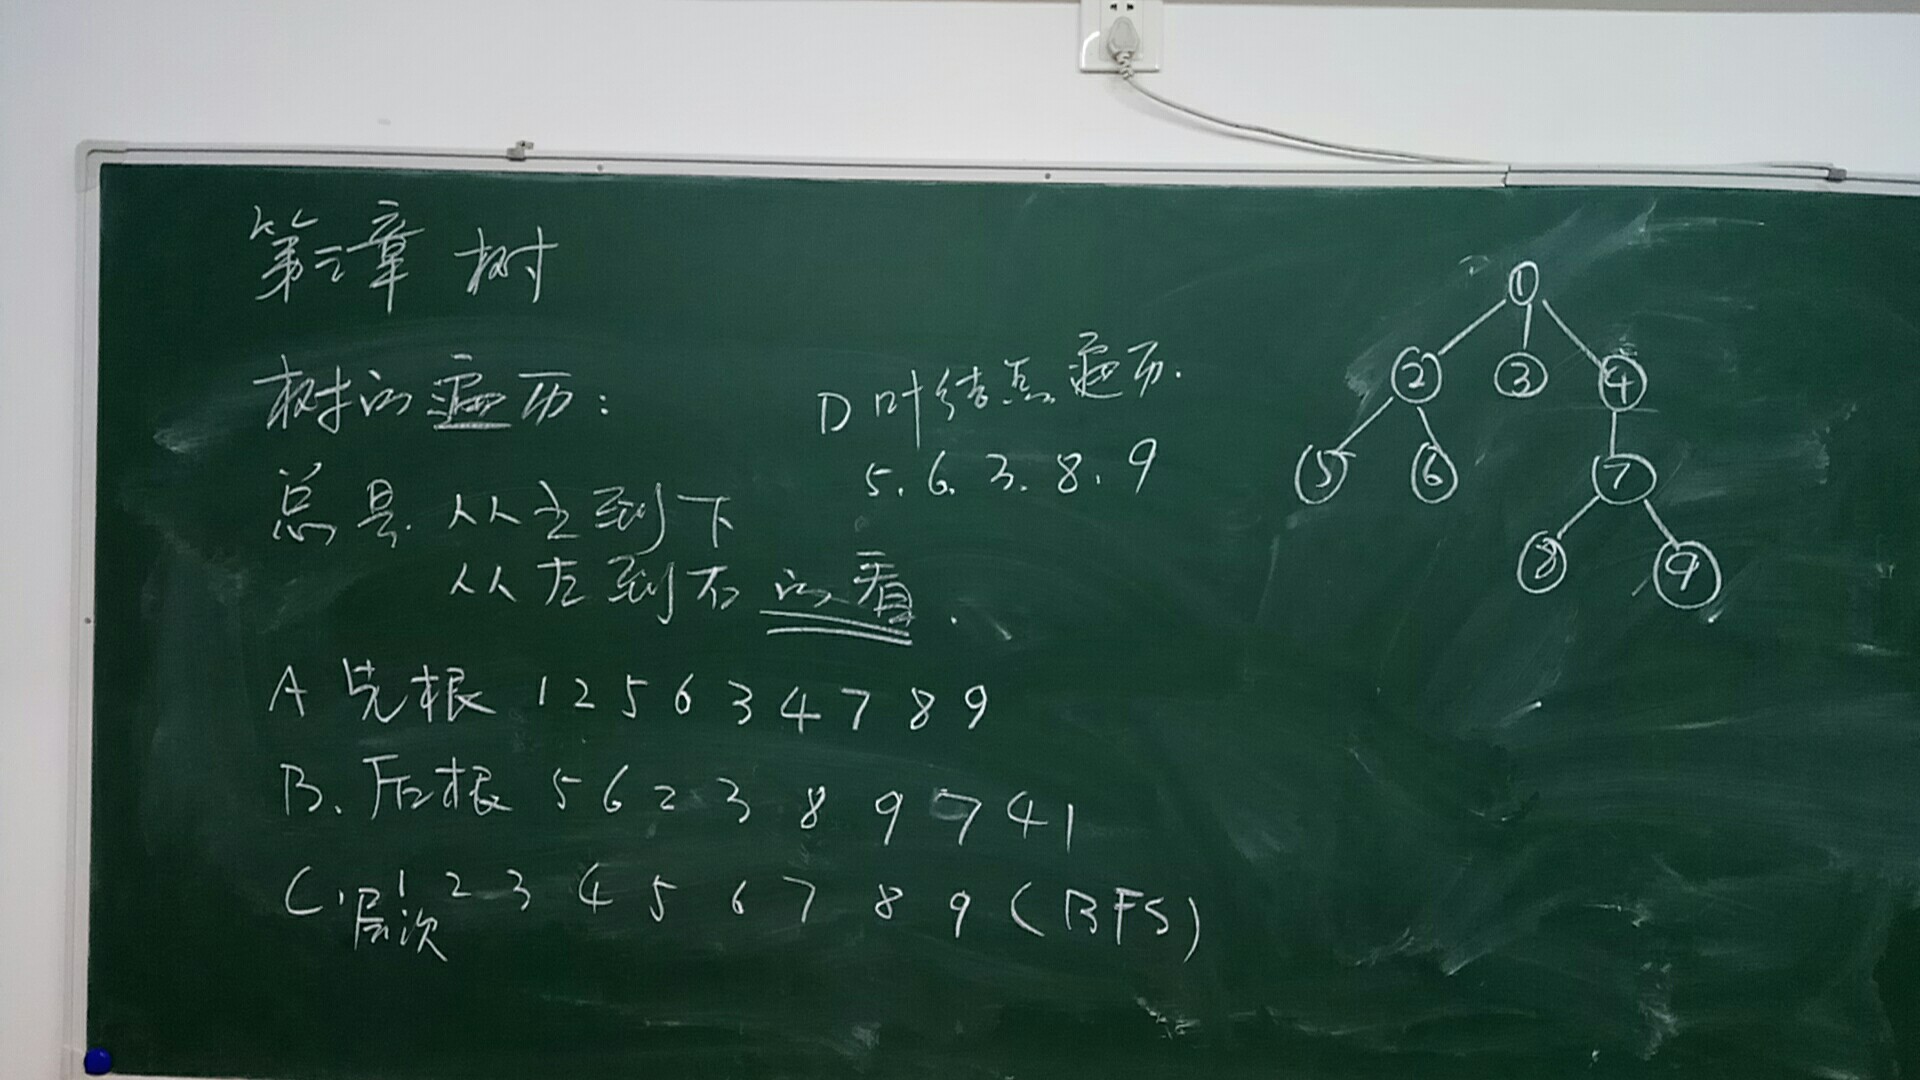 第三章 树
树的遍历：
总是 从上到下
从左到右的看.
A 先根 1 2 5 6 3 4 7 8 9
B. 后根 5 6 2 3 8 9 7 4 1
C. 层次 1 2 3 4 5 6 7 8 9 (BFS)
D 叶结点遍历.
5. 6. 3. 8. 9
1
2 3 4
5 6 7
8 9